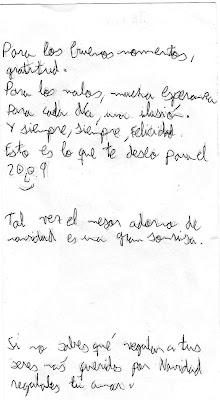 Para los buenos momentos,
gratitud.
Para los malos, mucha esperanza
Para cada día, una ilusión.
Y siempre, siempre, felicidad.
Esto es lo que te deseo para el
2009
Tal vez el mejor adorno de
navidad es una gran sonrisa.
Si no sabes qué regalar a tus
seres más queridos por Navidad
regálales tu amor.